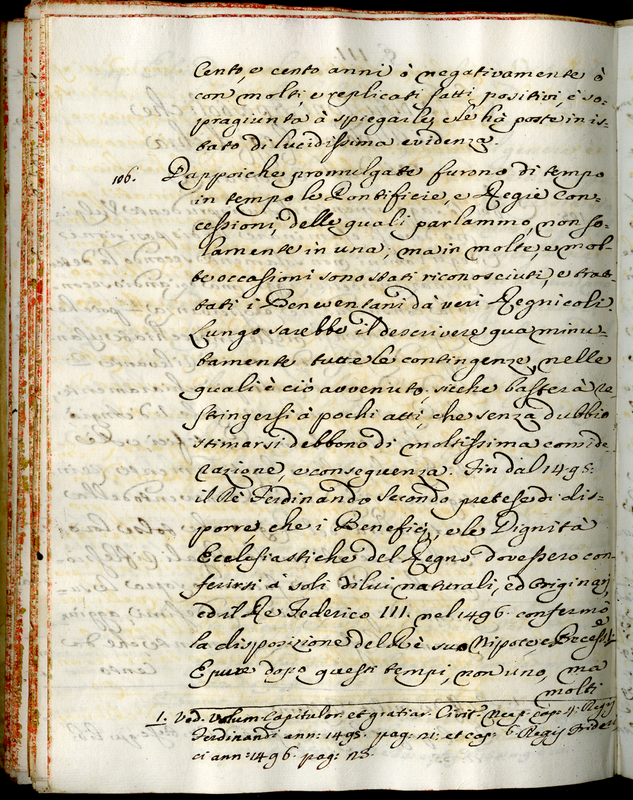 Cento, e cento anni ò negativamente ò
con molti, e replicati fatti positivi, è so=
pragiunta à spiegarle, e le hà poste in is=
tato di lucidissima evidenza.
106. Dappoiche promulgate furono di tempo
in tempo le Pontificie, e Regie Con=
cessioni, delle quali parlammo, non so=
lamente in una, ma in molte, e mol=
te occassioni sono stati riconosciuti, e trat=
tati i Beneventani da veri Regnicoli.
Lungo sarebbe il descrivere qua minu=
tamente tutte le contingenze, nelle
quali è ciò avvenuto, sicche basterà re=
stringersi à pochi atti, che senza dubbio
stimarsi debbono di moltissima conside=
razione, e conseguenza. Fin dal 1495:
il Rè Ferdinando Secondo pretese di dis=
porre, che i Beneficj, e le Dignità
Ecclesiastiche del Regno dovessero con=
ferirsi à soli di lui naturali, ed Originarj,
ed il Re Federico III. nel 1496. confermò
la disposizione del Rè suo Nipote e Precess.re
Epure dopo questi tempi non uno, ma
molti
1. Vid. Volum. Capitulor. et gratiar. Civit.s Neap. cap: 4: Regis
Ferdinandi ann: 1495. pag: 21: et cap: 6. Regis Frideri
ci ann: 1496. pag: 23.